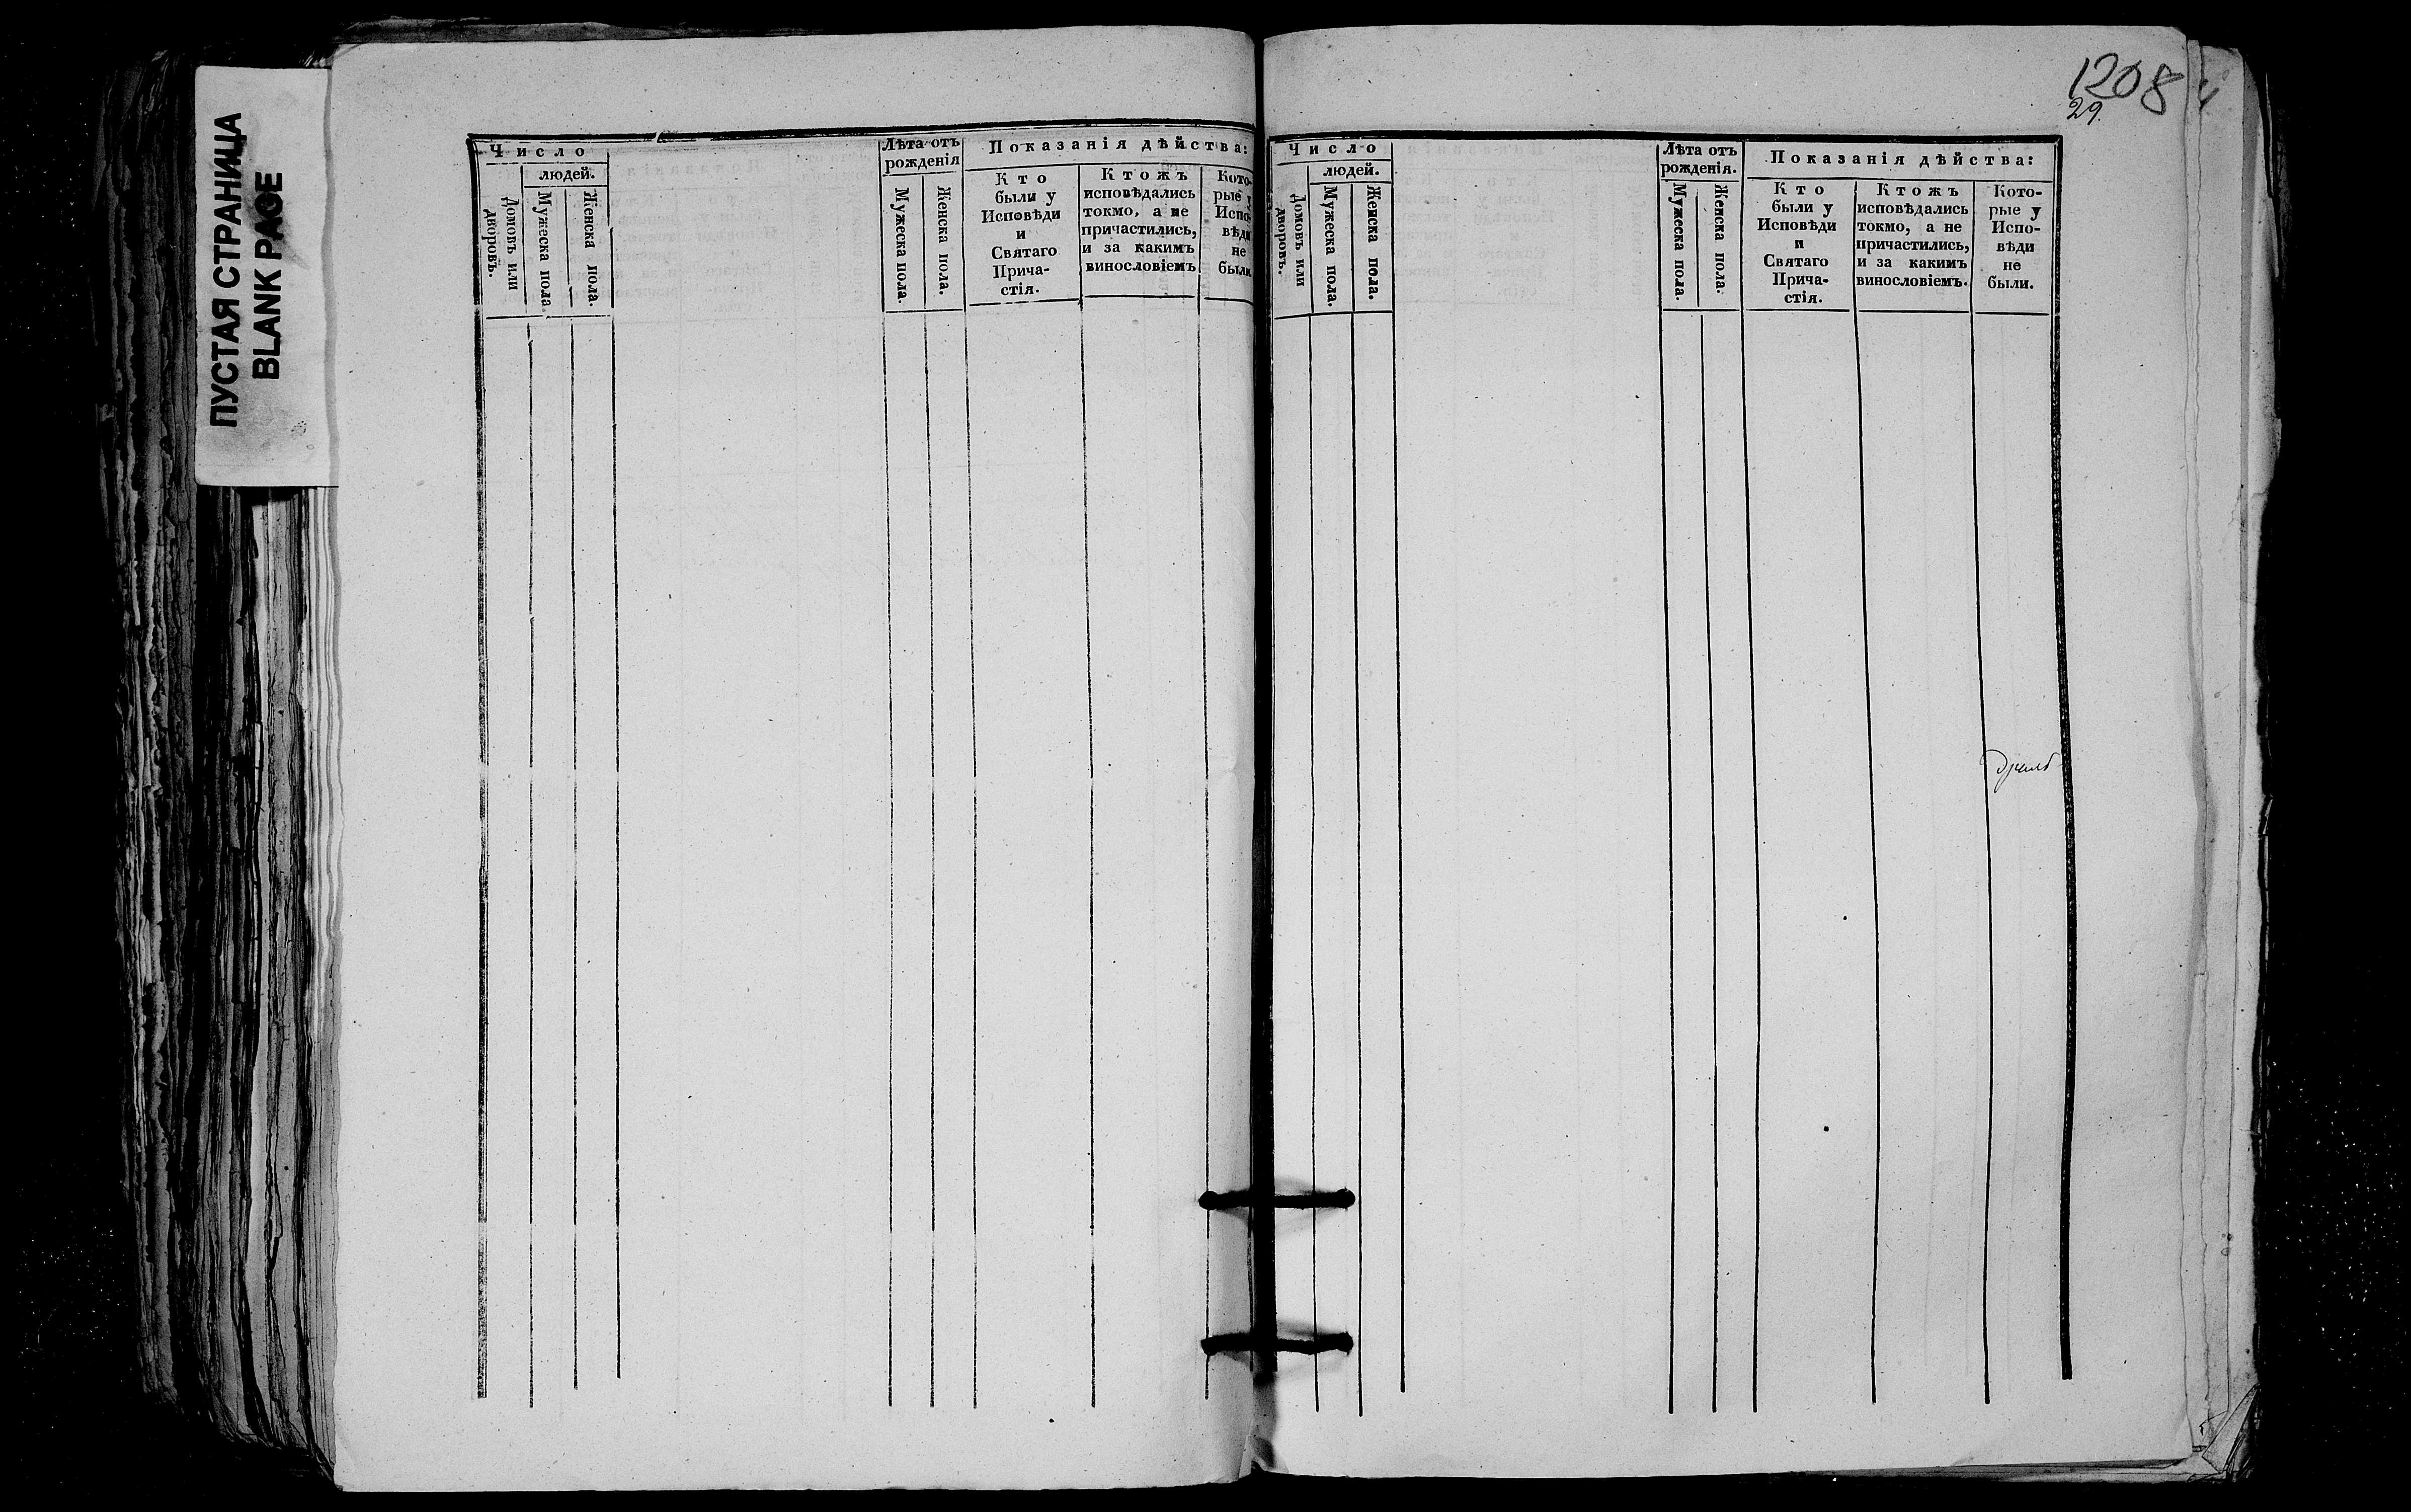 ПУСТАЯ СТРАНИЦА
BLANK PAGE
Число
людей.
Домовъ или дворовъ.
Мужеска пола.
Женска пола.
Лѣта отъ
рожденія
Мужеска пола.
Женска пола.
Показанія дѣйства:
Кто
были у
Исповѣди
и
Святаго
Прича-
стія.
Ктожъ
исповѣдались
токмо, а не
причастились,
и за какимъ
винословіемъ
Кото-
рые у
Испо-
вѣди
не
были
1208
29
Число
людей.
Домовъ или дворовъ.
Мужеска пола.
Женска пола.
Лѣта отъ
рожденія.
Мужеска пола.
Женска пола.
Показанія дѣйства:
Кто
были у
Исповѣди
и
Святаго
Прича-
стія.
Ктожъ
исповѣдались
токмо, а не
причастились,
и за какимъ
винословіемъ.
Кото-
рые у
Испо-
вѣди
не
были.